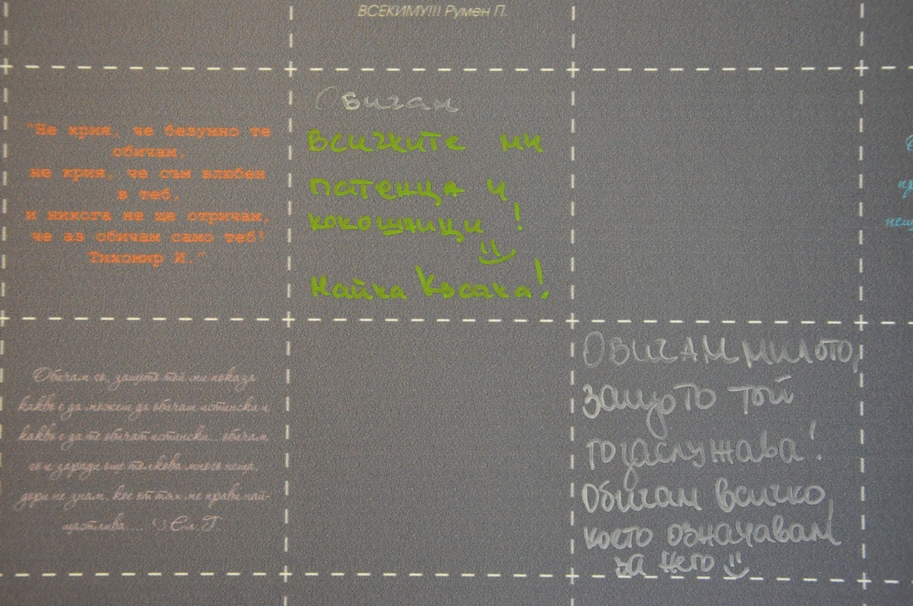 ВСЕКИМУ!!! Румен П.
"Не крия, че безумно те
обичам,
не крия, че съм влюбен
в теб,
и никога не ще отричам,
че аз обичам само теб!
Тихомир И."
Обичам
Всичките ми
патенца и
кокошчици!
Майка Късака!
Обичам го, защото той ми показа
какво е да можеш да обичам истински и
какво е да те обичат истински... обичам
го и заради още толкова много неща,
дори не знам, кое от тях ме прави най-
щастлива....
ОБИЧАМ МИЛОТО,
защото той
го заслужава!
Обичам всичко,
което означавам
за него